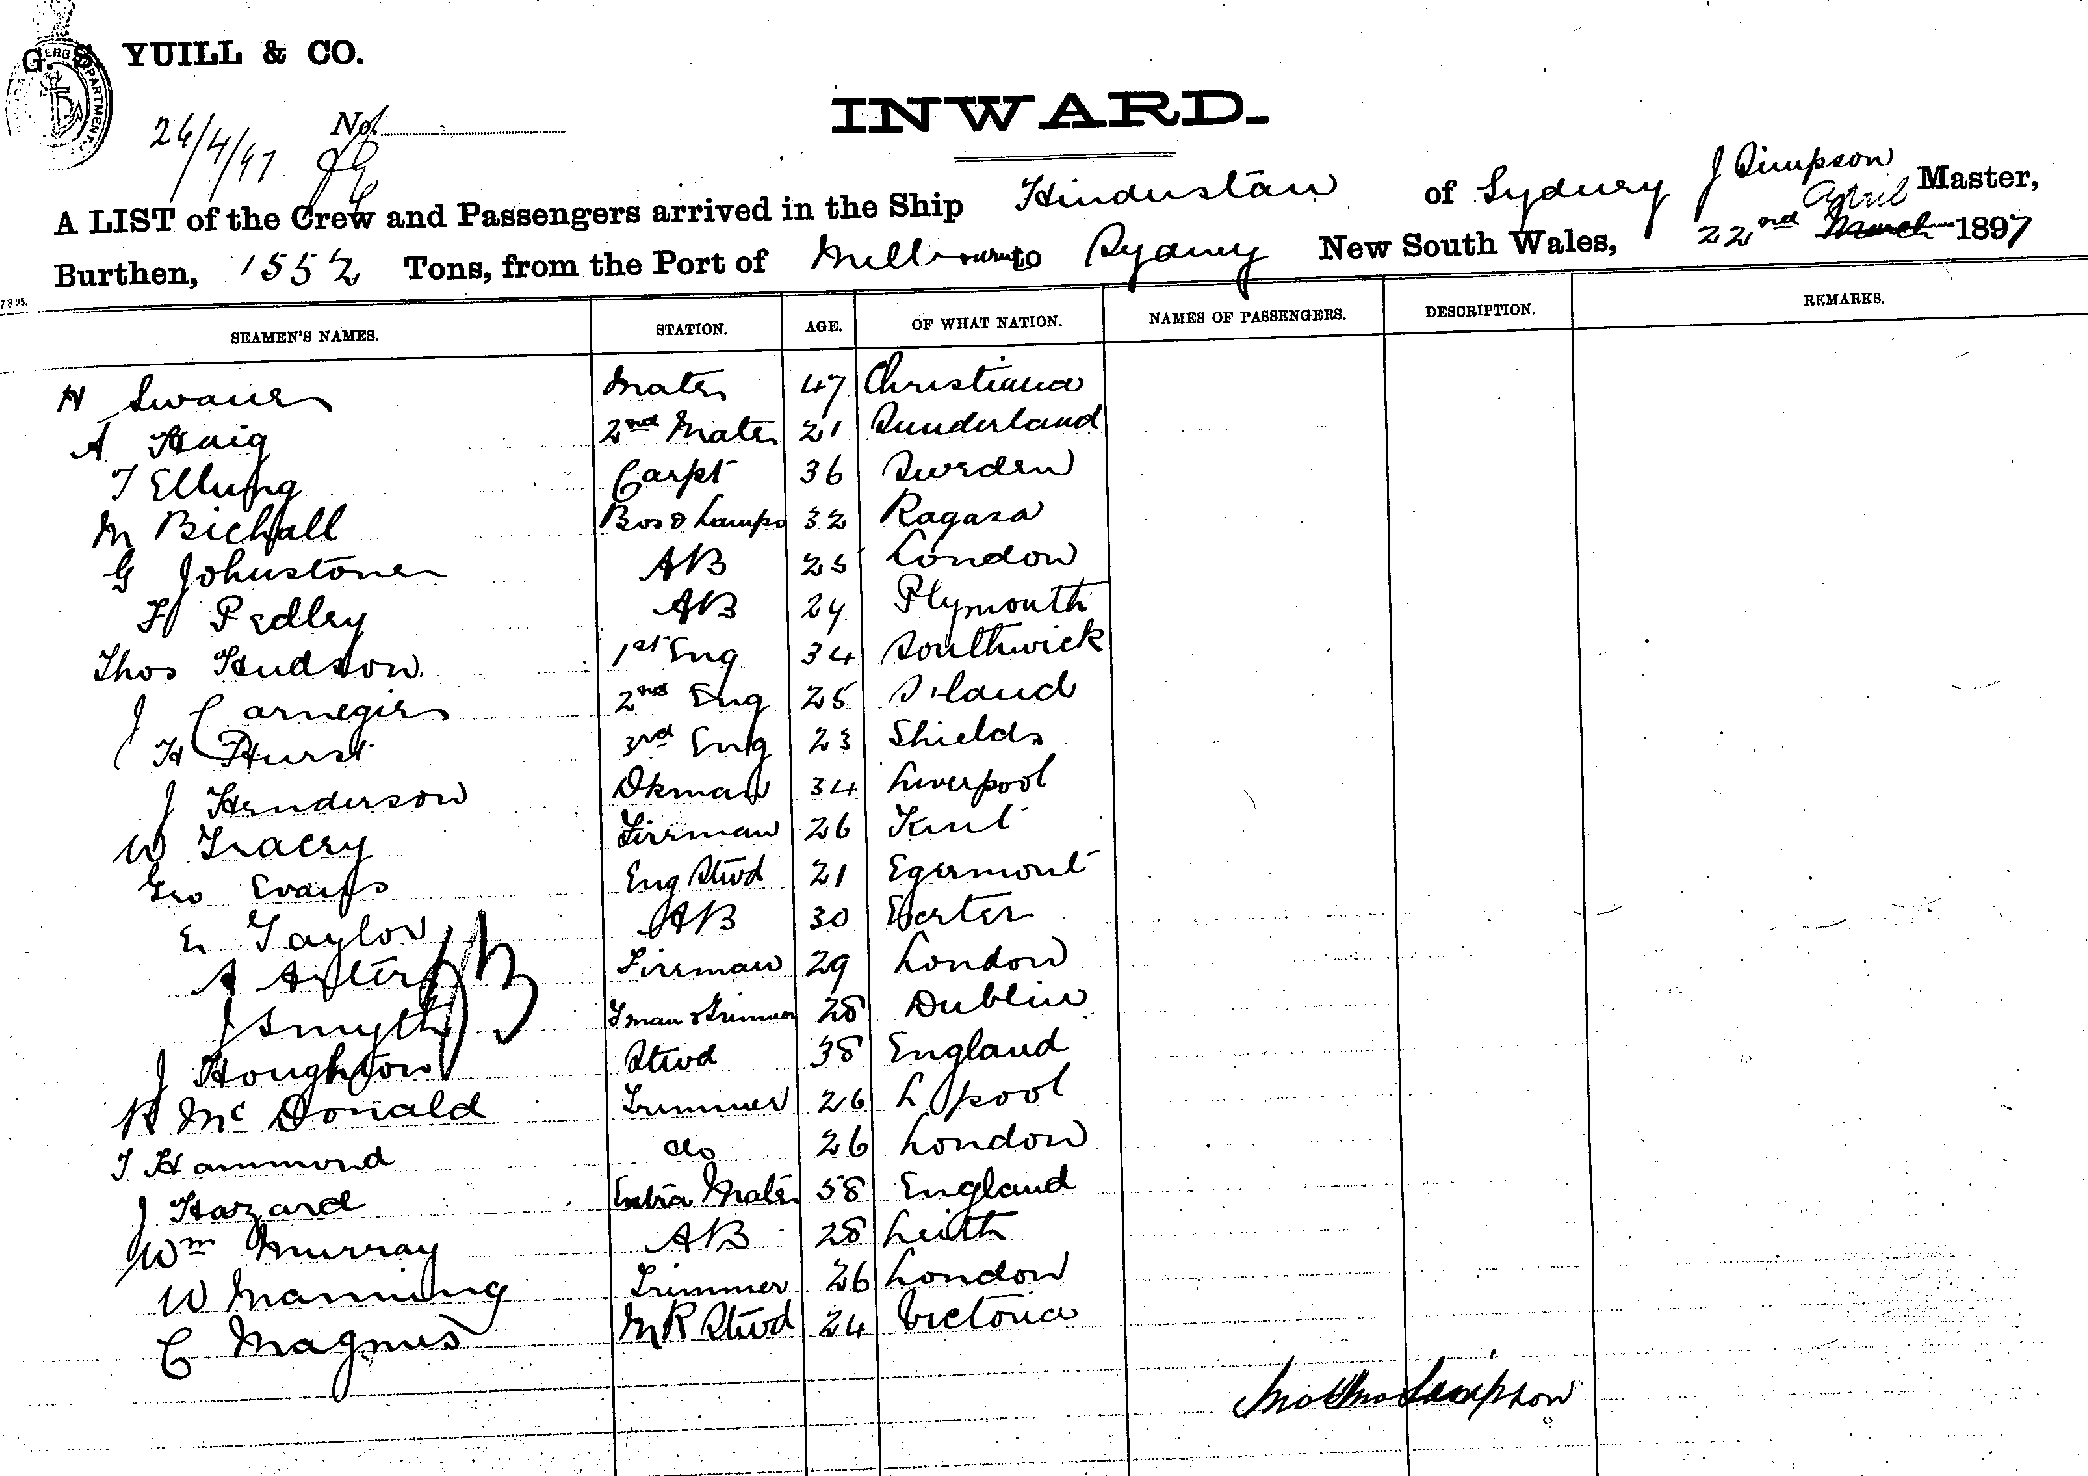 G. S. YUILL & CO.
26/4/97 No.
INWARD.
A LIST of the Crew and Passengers arrived in the Ship Hindustan of Sydney J Simpson Master,
Burthen, 1552 Tons, from the Port of Melbourne to Sydney New South Wales, 22nd March April 1897
SEAMEN'S NAMES. STATION. AGE. OF WHAT NATION. NAMES OF PASSENGERS. DESCRIPTION. REMARKS.
H Swane Mate 47 Christiana
A Haig 2nd Mate 21 Sunderland
T Ellung Carpt 36 Sweden
M Bichall Bos & Lamps 32 Ragasa
G Johnstone AB 25 London
F Pedley AB 24 Plymouth
Thos Hudson 1st Eng 34 Southwick
J Carnegie 2nd Eng 25 S'land
H Hurst 3rd Eng 23 Shields
J Henderson Dkman 34 Liverpool
W Tracey Fireman 26 Kent
Geo Evans Eng Stwd 21 Egermont
E Taylor AB 30 Exeter
A Fireman 29 London
J Smyth Fman & Trimmer 28 Dublin
J Houghton Stwd 38 England
R McDonald Trimmer 26 L'pool
T Hammond do 26 London
J Hazard Extra Mate 58 England
Wm Murray AB 28 Leith
W Manning Trimmer 26 London
C Magnus MR Stwd 24 Victoria
Simpson